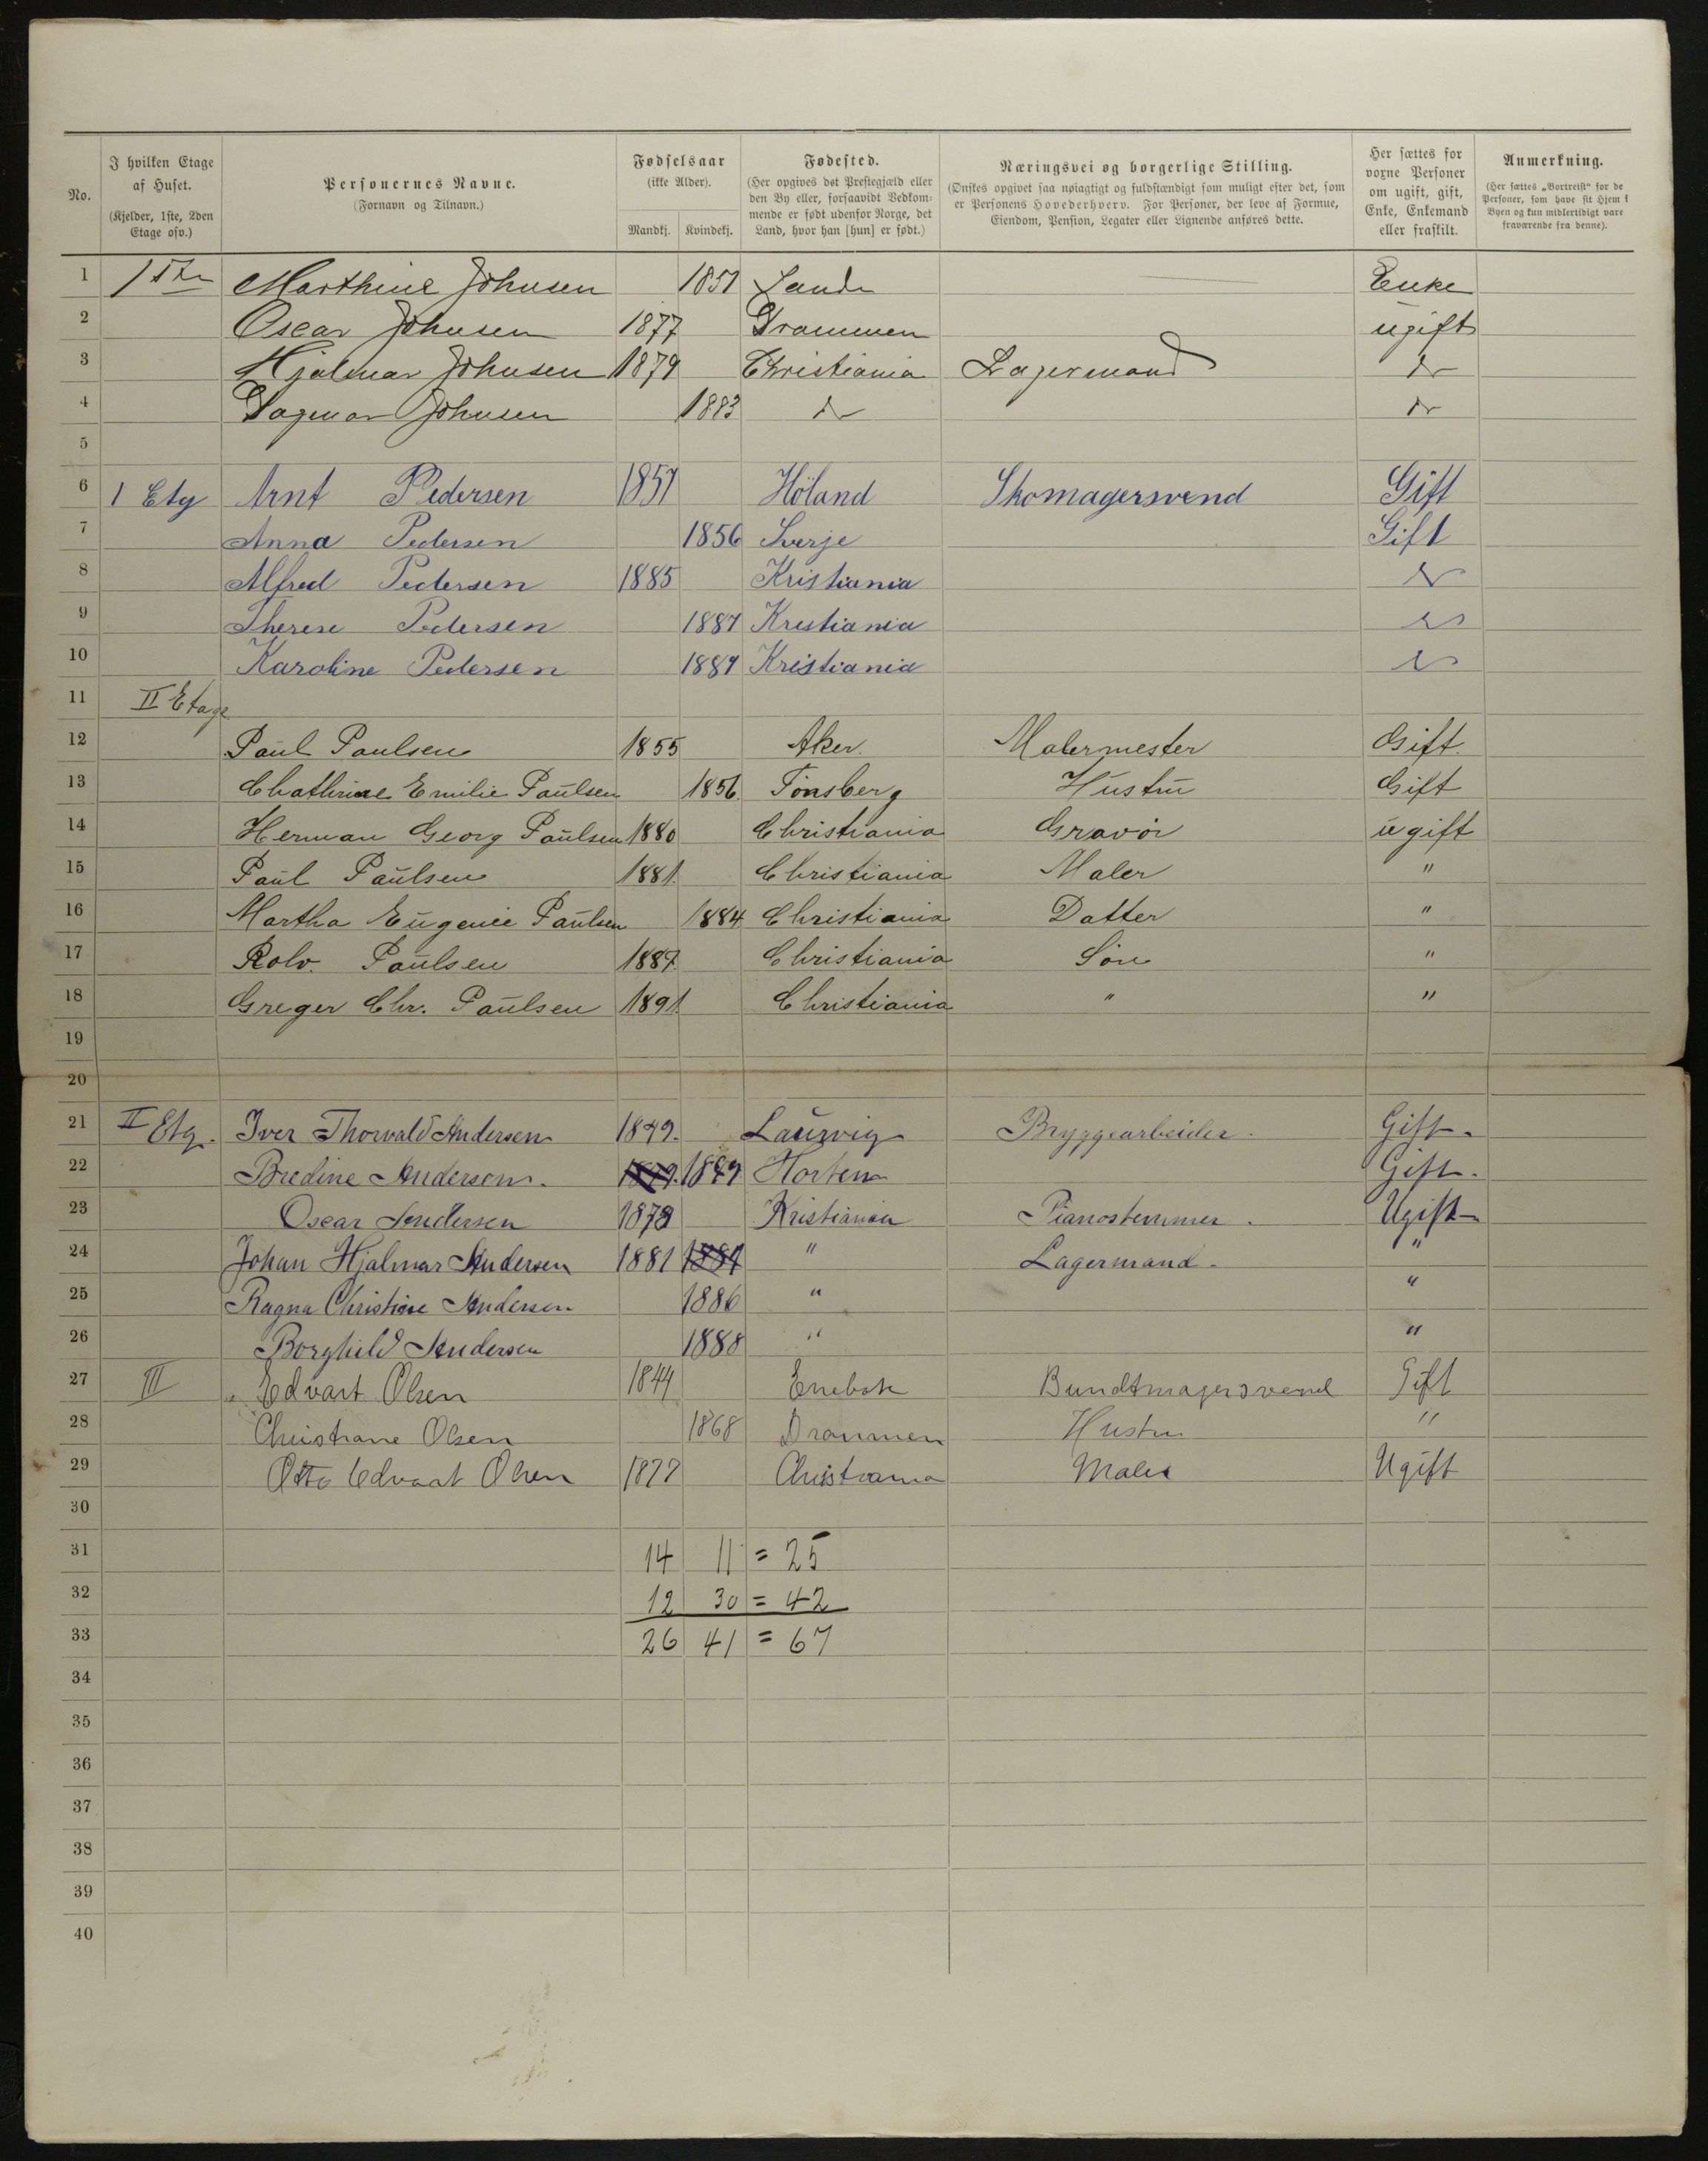 No.	I hvilken Etage af Huset. (Kjelder, 1ste, 2den Etage osv.)	Personernes Navne. (Fornavn og Tilnavn.)	Fødselsaar (ikke Alder). Mandkj. Kvindekj.	Fødested. (Her opgives det Prestegjæld eller den By eller, forsaavidt Vedkommende er født udenfor Norge, det Land, hvor han [hun] er født.)	Næringsvei og borgerlige Stilling. (Ønskes opgivet saa nøiagtigt og fuldstændigt som muligt efter det, som er Personens Hovederhverv. For Personer, der leve af Formue, Eiendom, Pension, Legater eller Lignende anføres dette.	Her sættes for voxne Personer om ugift, gift, Enke, Enkemand eller fraskilt.	Anmerkning. (Her sættes „Bortreist“ for de Personer, som have sit Hjem i Byen og kun midlertidigt vare fraværende fra denne).
1 1ste Marthine Johnsen 1851 Sande Enke
2 Oscar Johnsen 1877 Drammen ugift
3 Hjalmar Johnsen 1879 Christiania Lagermand do
4 Dagmar Johnsen 1883 do do
5
6 1 Etg Arnt Pedersen 1857 Höland Skomagersvend Gift
7 Anna Pedersen 1856 Sverje Gift
8 Alfred Pedersen 1885 Kristiania
9 Therese Pedersen 1887 Kristiania
10 Karoline Pedersen 1889 Kristiania
11 II Etage
12 Paul Paulsen 1855 Aker. Malermester Gift.
13 Chathrine Emilie Paulsen 1856. Tønsberg Hustru Gift
14 Herman Georg Paulsen 1880 Christiania Gravör ugift
15 Paul Paulsen 1881. Christiania Maler "
16 Martha Eugenie Paulsen 1884 Christiania Datter "
17 Rolv. Paulsen 1887. Christiania Sön "
18 Greger Chr. Paulsen 1891. Christiania " "
19
20
21 II Etg. Iver Thorvald Andersen 1849. Laurvig Bryggearbeider. Gift.
22 Bredine Andersen. 1849 Horten Gift.
23 Oscar Andersen 1879 Kristiania Pianostemmer. Ugift
24 Johan Hjalmar Andersen 1881 " Lagermand. "
25 Ragna Christine Andersen 1886 " "
26 Borghild Andersen 1888 " "
27 III Edvart Olsen 1844 Enebak Bundtmagersvend Gift
28 Christiane Olsen 1868 Drammen Hustru "
29 Otto Edvart Olsen 1877 Christiania Maler Ugift
30
31 14 11 = 25
32 12 30 = 42
33 26 41 = 67
34
35
36
37
38
39
40